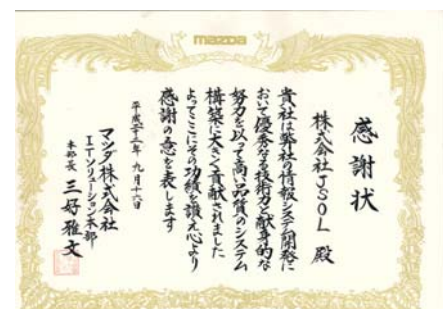 mazda
感謝状
株式会社JSOL 殿
貴社は弊社の情報システム開発に
おいて優秀なる技術力と献身的な
努力を以って高い品質のシステム
構築に大きく貢献されました
よってここにその功績を讃え心より
感謝の意を表します
平成二十一年 九月十六日
マツダ株式会社
ITソリューション本部
本部長 三好雅文